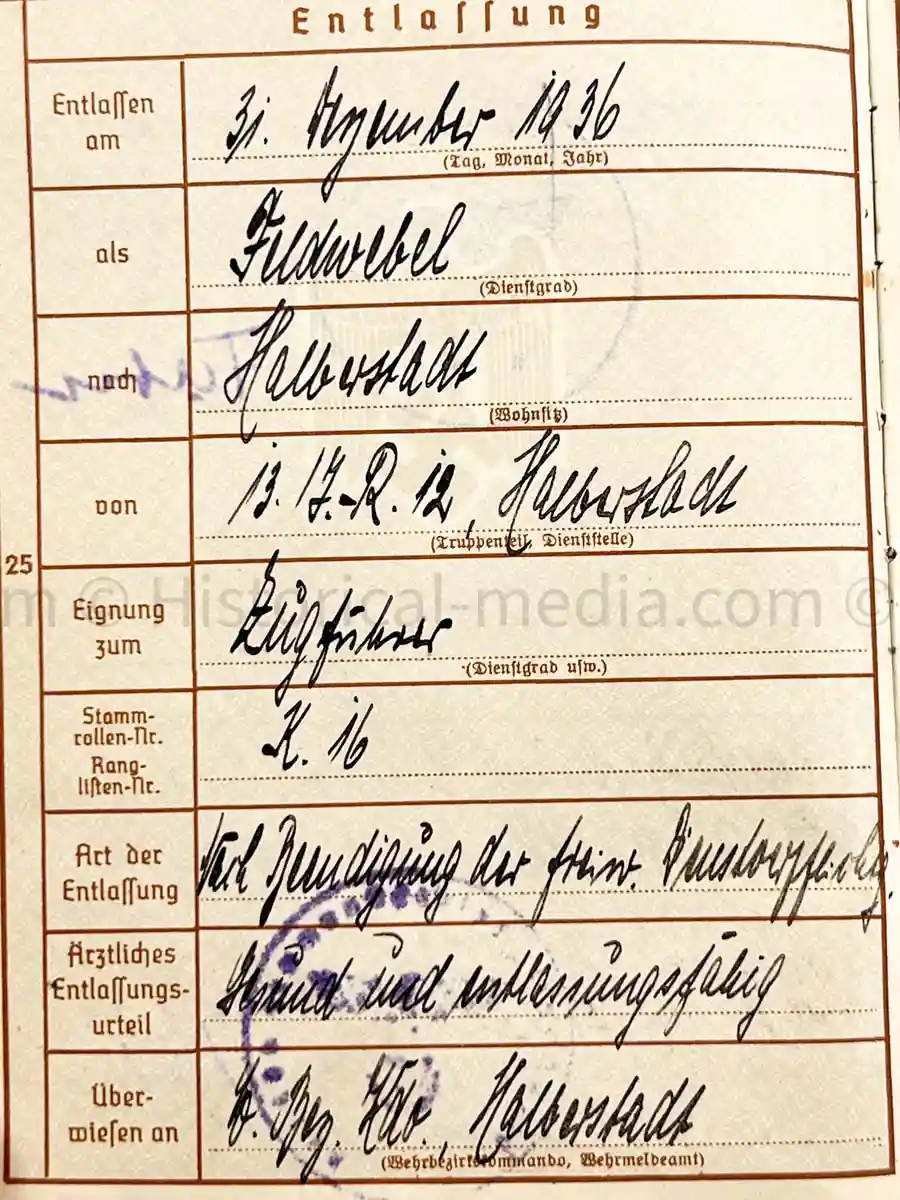 Entlassung
Entlassen am
31. Dezember 1936
(Tag, Monat, Jahr)
als
Feldwebel
(Dienstgrad)
nach
Halberstadt
(Wohnsitz)
von
13. I.-R. 12, Halberstadt
(Truppenteil, Dienststelle)
25
m © Historical-media.com ©
Eignung zum
Zugführer
(Dienstgrad usw.)
Stamm-
rollen-Nr.
Rang-
listen-Nr.
K. 16
Art der
Entlassung
Nach Beendigung der freiw. Dienstverpflichtg.
Ärztliches
Entlassungs-
urteil
Gesund und entlassungsfähig
Über-
wiesen an
W. Bez. Kdo., Halberstadt
(Wehrbezirkskommando, Wehrmeldeamt)